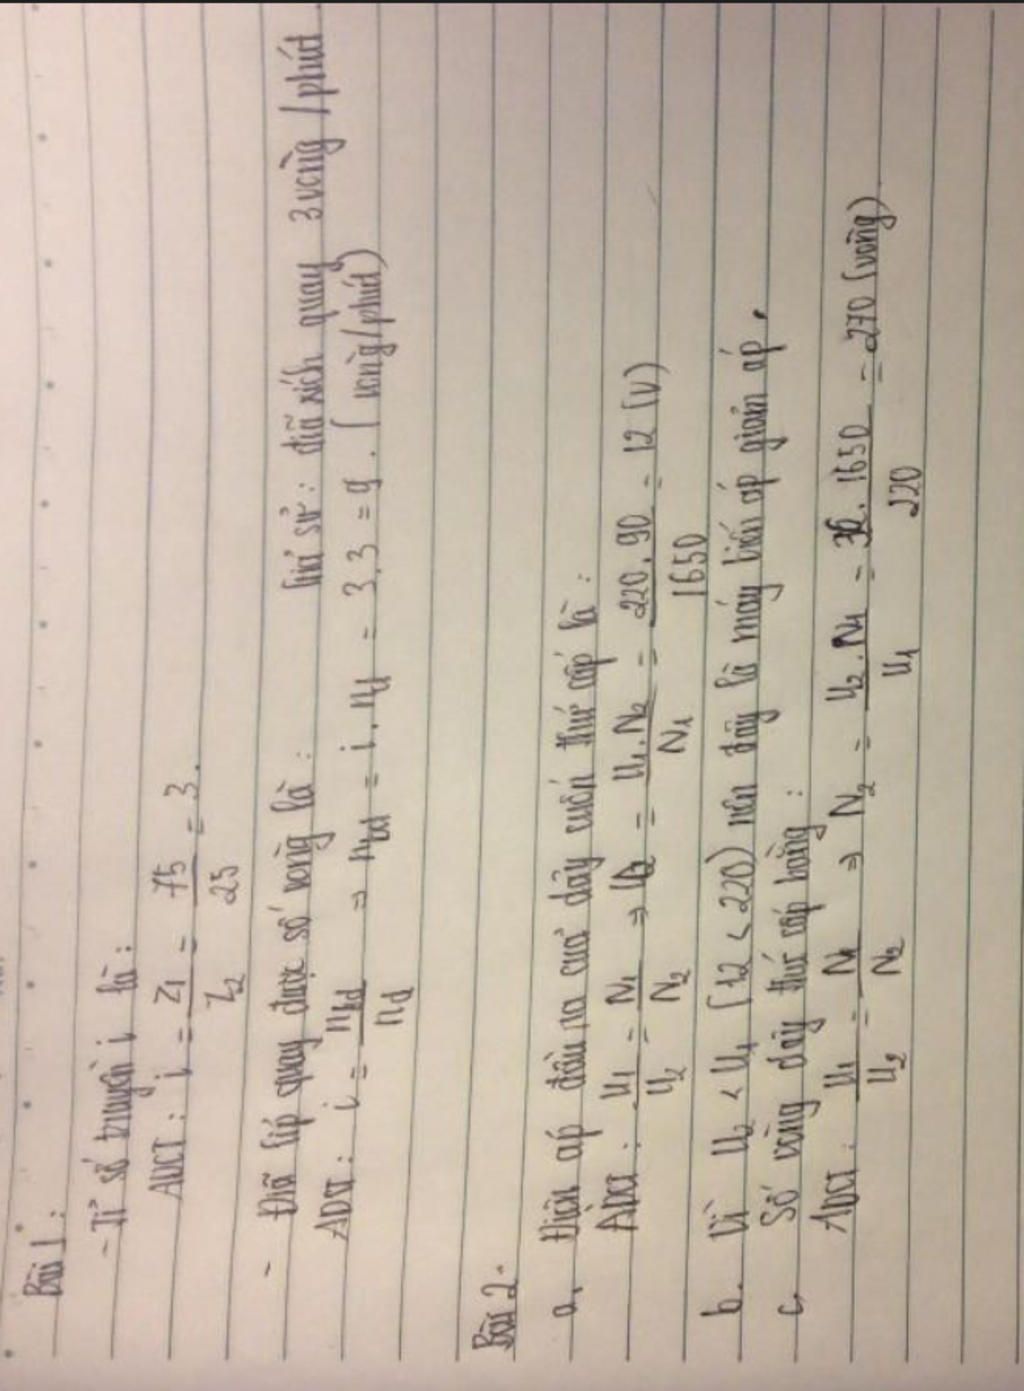 Bài 1:
- Tỉ số truyền i là:
ADCT: i = Z1/Z2 = 75/25 = 3.
- Đĩa líp quay được số vòng là: Giả sử: đĩa xích quay 3 vòng/phút
ADCT: i = nbd/nd ⇒ nbd = i.nd = 3.3 = 9. (vòng/phút)
Bài 2.
a, Điện áp đầu ra của dây cuốn thứ cấp là:
ADCT: U1/U2 = N1/N2 ⇒ U2 = U1.N2/N1 = 220.90/1650 = 12 (V)
b. Vì U2 < U1 (12 < 220) nên đây là máy biến áp giảm áp.
c, Số vòng dây thứ cấp bằng:
ADCT: U1/U2 = N1/N2 ⇒ N2 = U2.N1/U1 = 36.1650/220 = 270 (vòng)